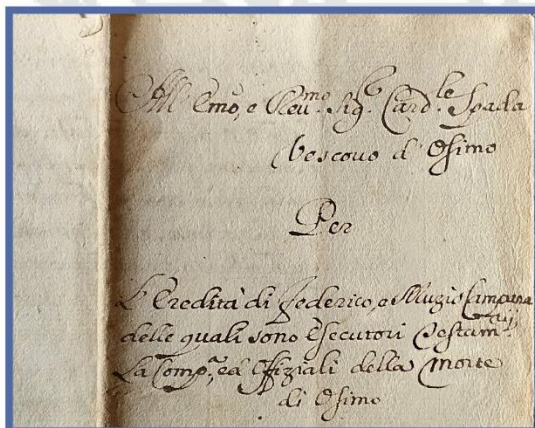 All' Emo, e Reu.mo Sig.e Card.le Spada
Vescouo d' Osimo
Per
L'Eredità di Federico, e Muzio Campana
delle quali sono Esecutori Testam.rij
La Comp.a, ed Offiziali della Morte
di Osimo